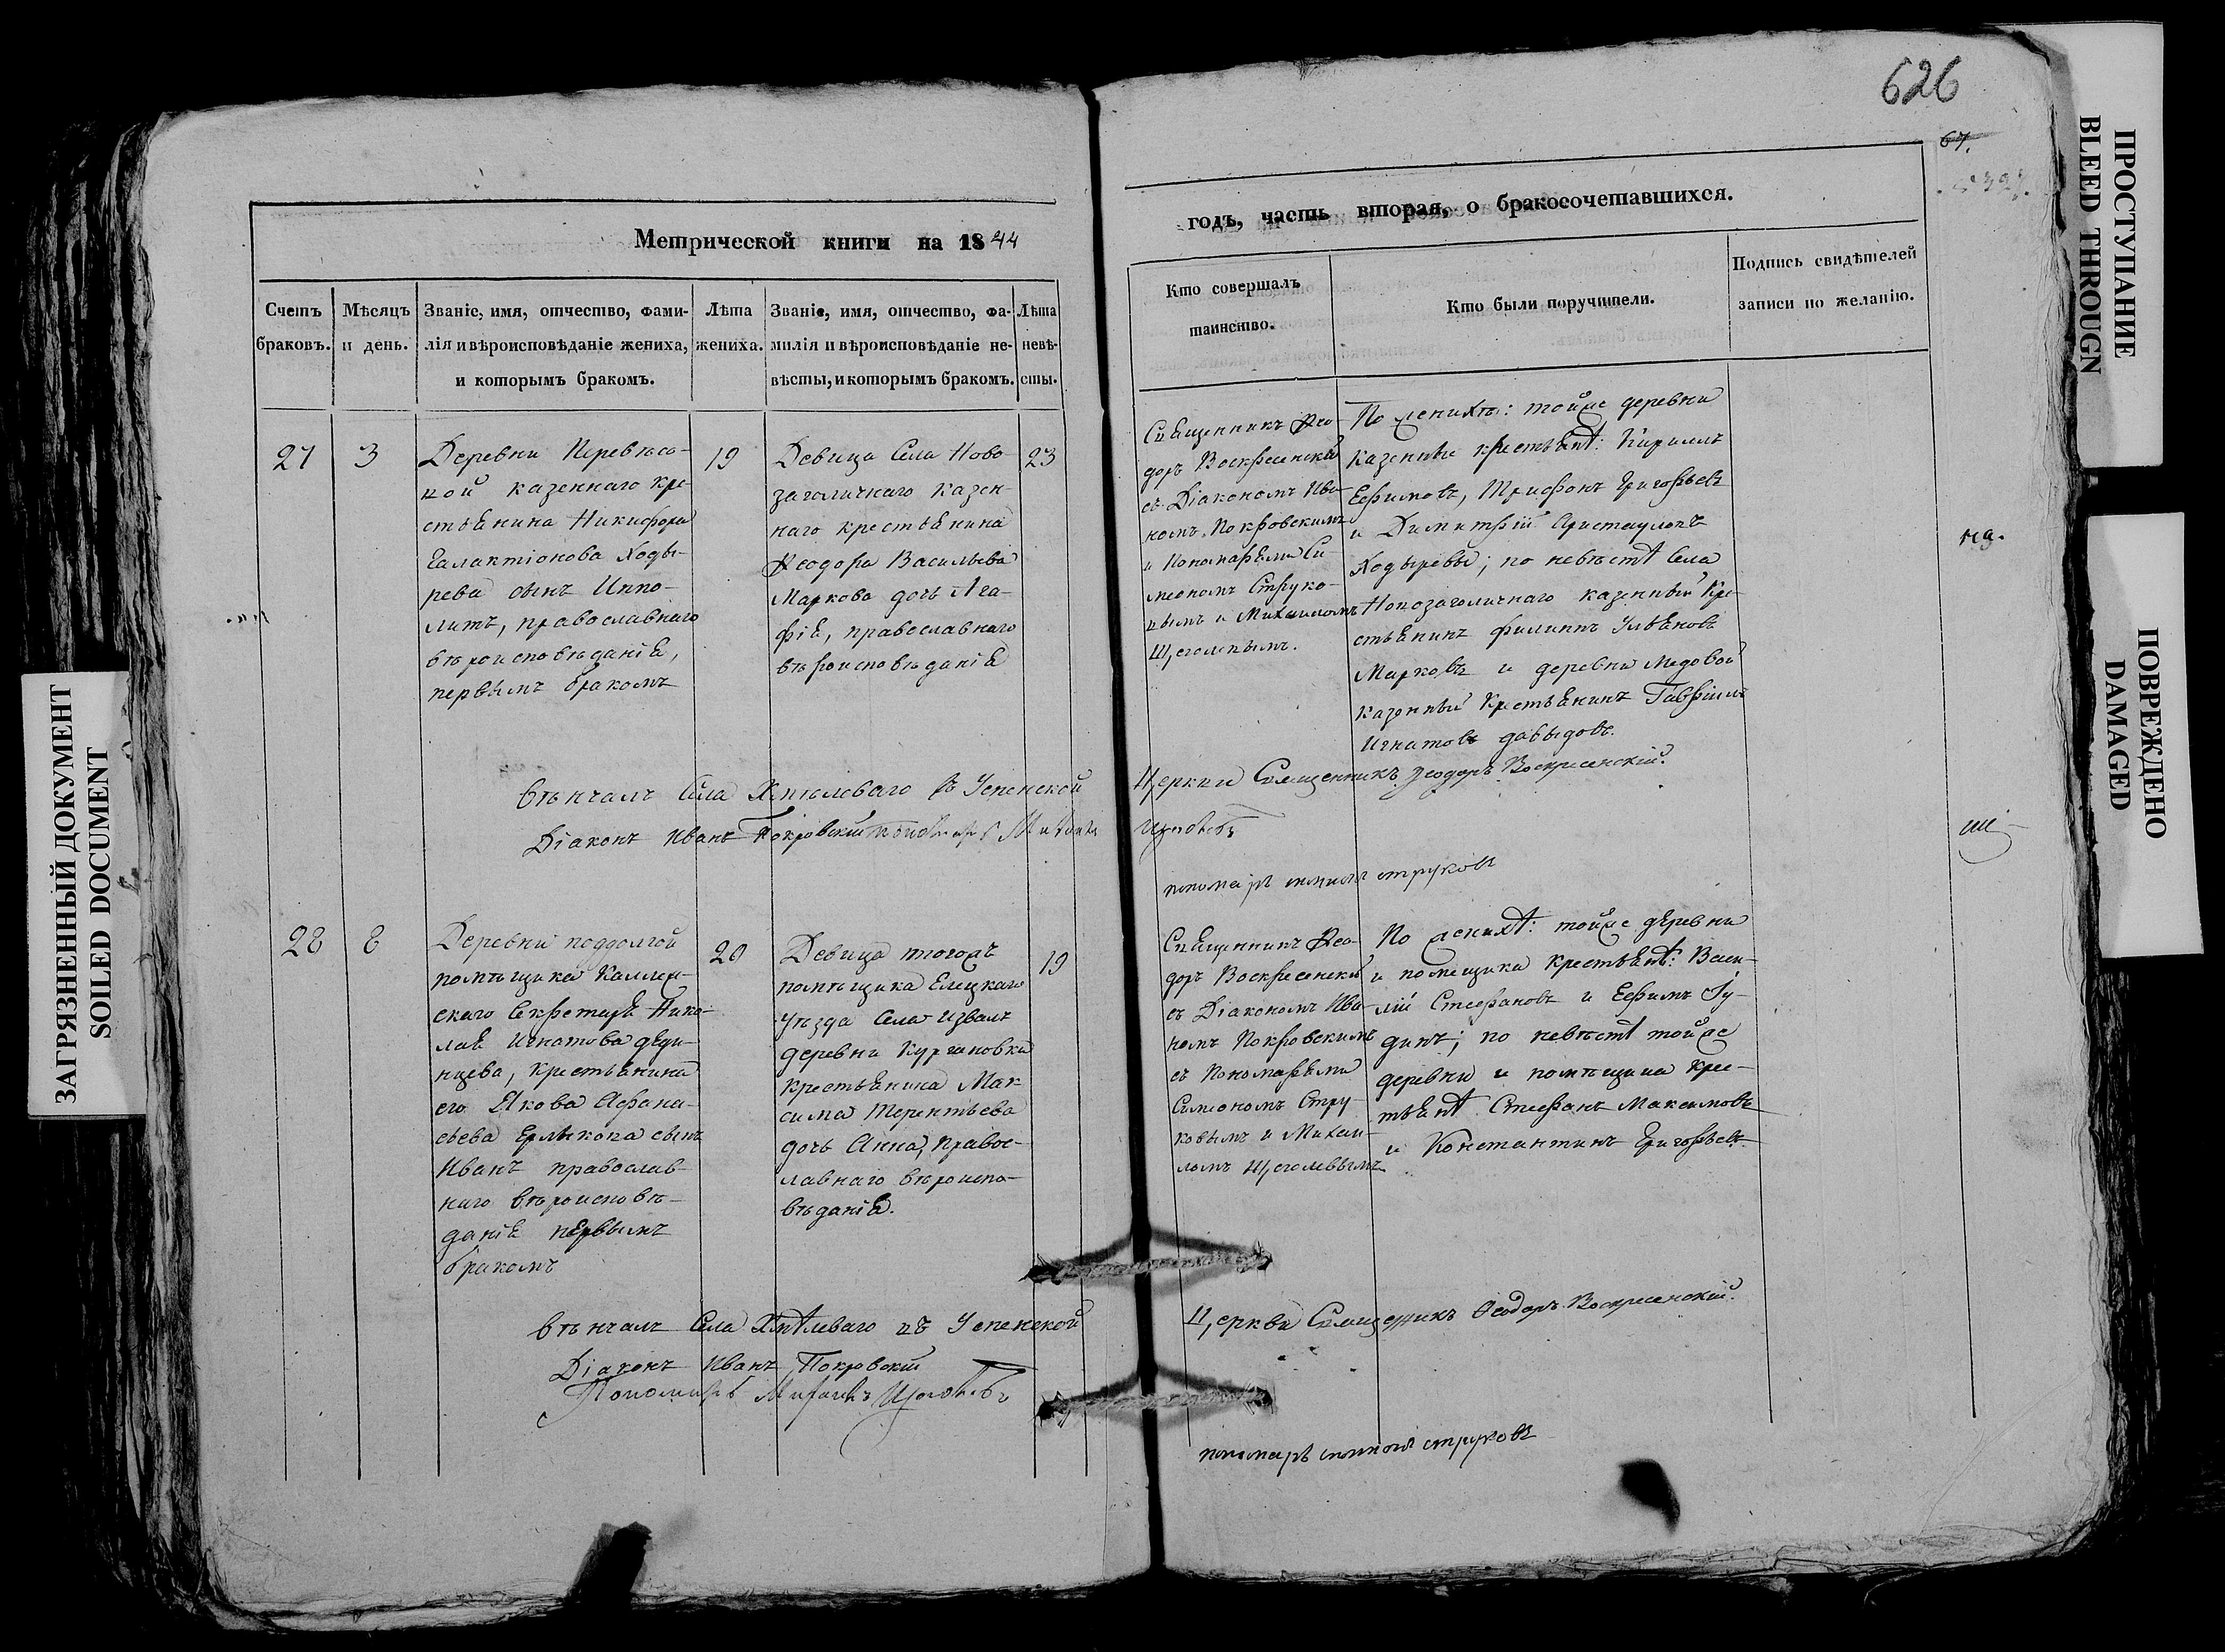 626
67.
Метрической книги на 1844
годъ, часть вторая, о бракосочетавшихся.
Счетъ браковъ.
Мѣсяцъ и день.
Званіе, имя, отчество, фами-
лія и вѣроисповѣданіе жениха,
и которымъ бракомъ.
Лѣта
жениха.
Званіе, имя, отчество, фа-
милія и вѣроисповѣданіе не-
вѣсты, и которымъ бракомъ.
Лѣта
невѣ-
сты.
Кто совершалъ
таинство.
Кто были поручители.
Подпись свидѣтелей
записи по желанію.
27
3
Деревни Перевѣсо-
ной казеннаго кре-
стьянина Никифора
Галактіонова Ходы-
рева сынъ Иппо-
литъ, православнаго
вѣроисповѣданія,
первымъ бракомъ
19
Девица Села Ново-
заголичнаго казен-
наго крестьянина
Ѳеодора Васильева
Маркова дочь Ага-
фія, православнаго
вѣроисповѣданія
23
Священникъ Ѳео-
доръ Воскресенскій
съ Діакономъ Ива-
номъ Покровскимъ
и Пономарями Си-
меономъ Струко-
вымъ и Михаиломъ
Щеголевымъ.
По женихѣ: тойже деревни
казенные крестьяне: Кириллъ
Ефимовъ, Трифонъ Григорьевъ
и Димитрій
Ходыревы; по невѣстѣ Села
Новозаголичнаго казенный Кре-
стьянинъ Филиппъ Ульяновъ
Марковъ и деревни Медовой
казенный Крестьянинъ Гавріилъ
Игнатовъ Давыдовъ.
вѣнчалъ Села Хмѣлеваго въ Успенской
Церкви Священникъ Ѳеодоръ Воскресенскій.
Діаконъ Иванъ Покровскій Пономарь Михаилъ
Щеголевъ
пономарь симионъ струковъ
28
8
Деревни поддолгой
помѣщика Коллеж-
скаго Секретаря Нико-
лая Игнатова
крестьянина
его Якова Афана-
сьева Ермакова сынъ
Иванъ православ-
наго вѣроисповѣ-
данія первымъ
бракомъ
20
Девица тогожъ
помѣщика Елецкаго
уѣзда Села Извалъ
деревни Кургановки
крестьянина Мак-
сима Терентьева
дочь Анна, право-
славнаго вѣроиспо-
вѣданія.
19
Священникъ Ѳео-
доръ Воскресенскій
съ Діакономъ Ива-
номъ Покровскимъ
съ Пономарями
Симеономъ Стру-
ковымъ и Михаи-
ломъ Щеголевымъ
По женихѣ: тойже деревни
и помещика крестьяне: Васи-
лій Стефановъ и Ефимъ Гу-
динъ; по невѣстѣ тойже
деревни и помѣщика крес-
тьяне Стефанъ Максимовъ
и Константинъ Григорьевъ.
вѣнчалъ Села Хмѣлеваго въ Успенской
Церкви Священникъ Ѳеодоръ Воскресенскій.
Діаконъ Иванъ Покровскій
Пономарь Михаилъ Щеголевъ
пономарь симионъ струковъ
ЗАГРЯЗНЕННЫЙ ДОКУМЕНТ
SOILED DOCUMENT
ПРОСТУПАНИЕ
BLEED THROUGN
ПОВРЕЖДЕНО
DAMAGED